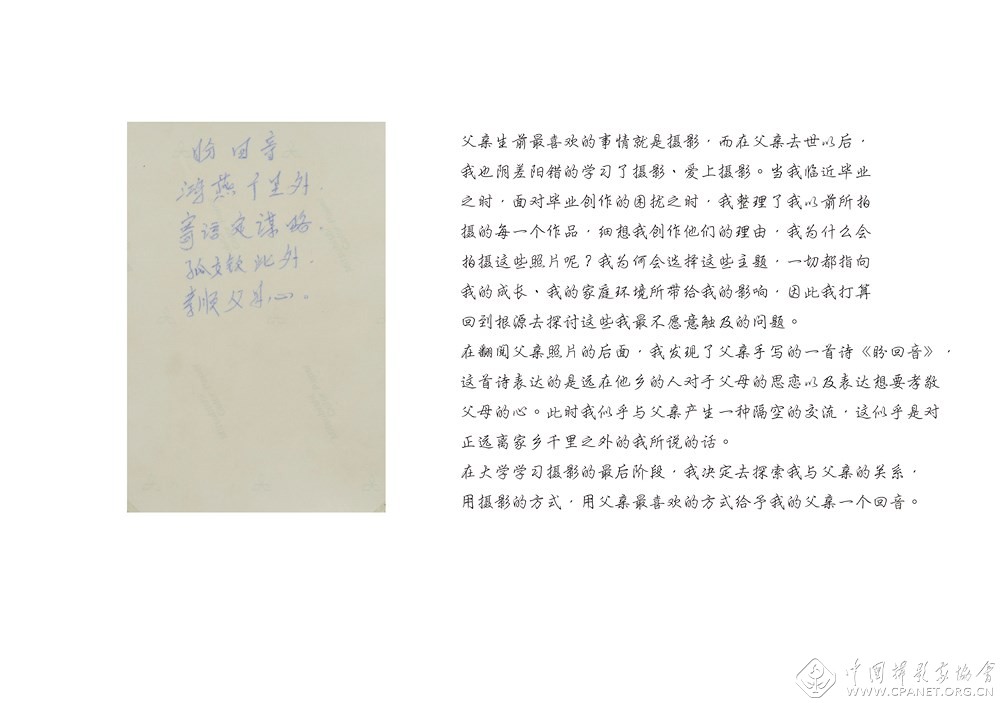 盼回音
鸿燕千里外.
寄语定谋略.
孤文敬此外.
孝顺父母心。
父亲生前最喜欢的事情就是摄影，而在父亲去世以后，
我也阴差阳错的学习了摄影、爱上摄影。当我临近毕业
之时，面对毕业创作的困扰之时，我整理了我以前所拍
摄的每一个作品，细想我创作他们的理由，我为什么会
拍摄这些照片呢？我为何会选择这些主题，一切都指向
我的成长、我的家庭环境所带给我的影响，因此我打算
回到根源去探讨这些我最不愿意触及的问题。
在翻阅父亲照片的后面，我发现了父亲手写的一首诗《盼回音》，
这首诗表达的是远在他乡的人对于父母的思恋以及表达想要孝敬
父母的心。此时我似乎与父亲产生一种隔空的交流，这似乎是对
正远离家乡千里之外的我所说的话。
在大学学习摄影的最后阶段，我决定去探索我与父亲的关系，
用摄影的方式，用父亲最喜欢的方式给予我的父亲一个回音。
中国摄影家协会
WWW.CPANET.ORG.CN